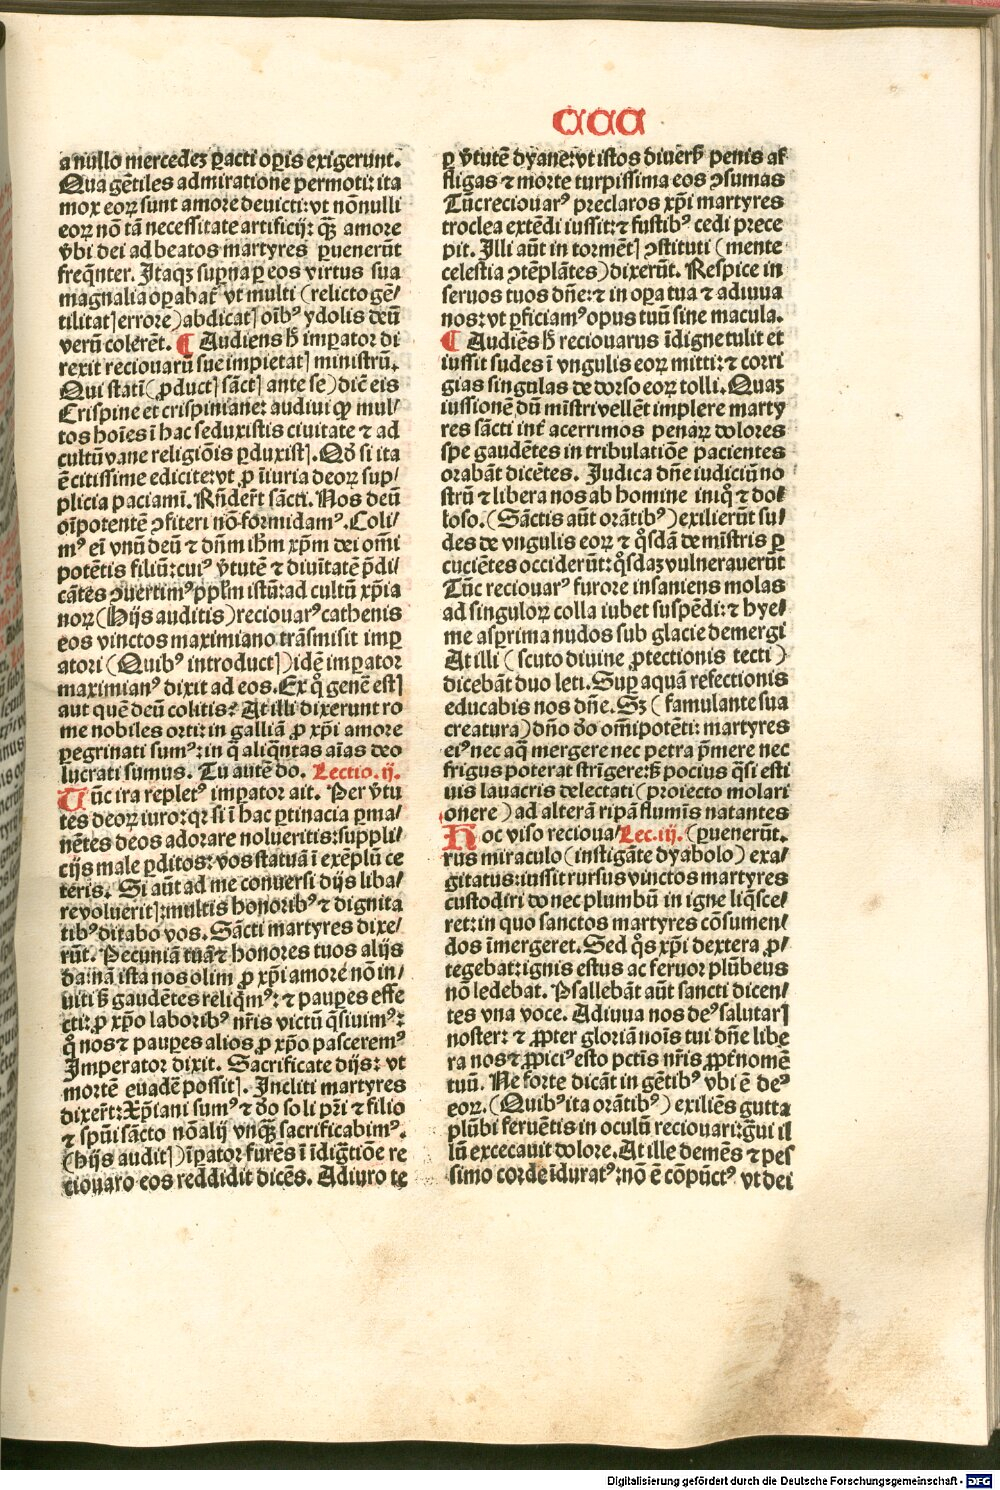 ααα
a nullo mercedeꝫ ꝑacti oꝑis exigerunt.
Qua gētiles admiratione permoti: ita
mox eoꝝ sunt amore deuicti: vt nōnulli
eoꝝ nō tā necessitate artificij: qꝫ̄ amore
v̄bi dei ad beatos martyres ꝑuenerūt
freq̄nter. Itaqꝫ suꝑna ꝑ eos virtus sua
magnalia oꝑabat᷑ vt multi (relicto gē/
tilitatꝭ errore) abdicatꝭ oībꝰ ydolis deū
verū colerēt. ¶ Audiens h̄ imꝑator di
rexit reciouarū sue impietatꝭ ministrū.
Qui statī (ꝓductꝭ sāctꝭ ante se) diē eis
Crispine et crispiniane: audiui ꝙ mul/
tos hoīes ī hac seduxistis ciuitate ⁊ ad
cultū vane religiōis ꝑduxistꝭ. Qđ si ita
ē citissime edicite: vt ꝓ īiuria deoꝝ sup/
plicia paciamī. Rn̄der̄t sācti. Nos deū
oīpotentē ↄfiteri nō formidamꝰ. Coli/
mꝰ eī vnū deū ⁊ dn̄m ihm̄ xp̄m dei om̄i
potētis filiū: cuiꝰ v̄tutē ⁊ diuītatē p̄di/
cātes ↄuertimꝰ pp̄lm istū: ad cultū xp̄ia
noꝝ (Hijs auditis) reciouarꝰ cathenis
eos vinctos maximiano trāsmisit imꝑ
atori (Quibꝰ introductꝭ) idē imꝑator
maximianꝰ dixit ad eos. Ex qͦ genē estꝭ
aut quē deū colitis? At illi dixerunt ro
me nobiles orti: in galliā ꝓ xp̄i amore
ꝑegrinati sumꝰ: in q̄ aliq̄ntas aīas deo
lucrati sumus. Tu autē do. Lectio. ij.
Tūc ira repletꝰ imꝑator ait. Per v̄tu
tes deoꝝ iuro: qꝛ si ī hac ꝑtinacia ꝑma/
nētes deos adorare nolueritis: suppli/
cijs male ꝑditos: vos statuā ī exēplū ce
teris. Si aūt ad me conuersi dijs liba/
re voluerītꝭ: multis honoribꝰ ⁊ dignita
tibꝰ ditabo vos. Sācti martyres dixe/
rūt. Pecuniā tuā ⁊ honores tuos alijs
da: nā ista nos olim ꝓ xp̄i amore nō in/
uiti s̄ gaudētes reliq̄mꝰ: ⁊ pauꝑes effe
cti: ꝓ xp̄o laboribꝰ nr̄is victū q̄siuimꝰ:
qͦ nos ⁊ pauꝑes alios ꝓ xp̄o pasceremꝰ
Imperator dixit. Sacrificate dijs: vt
mortē euadē possitꝭ. Incliti martyres
dixer̄t: Xp̄iani sumꝰ ⁊ đo soli pr̄i ⁊ filio
⁊ spūi sācto nō alij vnqꝫ̄ sacrificabimꝰ.
(Hijs auditꝭ) īꝑator furēs ī īdigtiōe re
ciouaro eos reddidit dicēs. Adiuro te
ꝑ v̄tutē dyane: vt istos diuers̄ penis af
fligas ⁊ morte turpissima eos ↄsumas
Tūc reciouarꝰ preclaros xp̄i martyres
troclea extēdi iussit: ⁊ fustibꝰ cedi prece
pit. Illi aūt in tormētꝭ ↄstituti (mente
celestia ↄtēplātes) dixerūt. Respice in
seruos tuos dn̄e: ⁊ in oꝑa tua ⁊ adiuua
nos: vt ꝑficiamꝰ opus tuū sine macula.
¶ Audiēs h̄ reciouarus īdigne tulit et
iussit sudes ī vngulis eoꝝ mitti: ⁊ corri
gias singulas de dorso eoꝝ tolli. Quaꝫ
iussionē dū mīstri vellēt implere marty
res sācti inť acerrimos penaꝝ dolores
spe gaudētes in tribulatiōe pacientes
orabāt dicētes. Judica dn̄e iudiciū no
strū ⁊ libera nos ab homine iniqͦ ⁊ do/
loso. (Sāctis aūt orātibꝰ) exilierūt su/
des de vngulis eoꝝ ⁊ qͦsdā de mīstris ꝑ
cuciētes occiderūt: qͦsdaꝫ vulnerauerūt
Tūc reciouarꝰ furore insaniens molas
ad singuloꝝ colla iubet suspēdi: ⁊ hye/
me asꝑrima nudos sub glacie demergi
At illi (scuto diuine ꝓtectionis tecti)
dicebāt duo leti. Suꝑ aquā refectionis
educabis nos dn̄e. Sꝫ (famulante sua
creatura) dn̄o đo om̄ipotēti: martyres
eiꝰ nec aq̄ mergere nec petra p̄mere nec
frigus poterat strīgere: s̄ pocius q̄si esti
uis lauacris delectati (proiecto molari
onere) ad alterā ripā flumīs natantes
Hoc viso recioua/ Lec. iij. (ꝑuenerūt.
rus miraculo (instigāte dyabolo) exa/
gitatus: iussit rursus vinctos martyres
custodiri donec plumbū in igne liq̄sce/
ret: in quo sanctos martyres cōsumen/
dos īmergeret. Sed qͦs xp̄i dextera ꝓ/
tegebat: ignis estus ac feruor plūbeus
nō ledebat. Psallebāt aūt sancti dicen/
tes vna voce. Adiuua nos deꝰ salutarꝭ
noster: ⁊ ꝓpter gloriā noīs tui dn̄e libe
ra nos ⁊ ꝓpiciꝰ esto pctīs nr̄is ꝓpt̄ nomē
tuū. Ne forte dicāt in gētibꝰ vbi ē deꝰ
eoꝝ. (Quibꝰ ita orātibꝰ) exiliēs gutta
plūbi feruētis in oculū reciouari: ḡui il
lū excecauit dolore. At ille demēs ⁊ pes
simo corde īduratꝰ: nō ē cōpūctꝰ vt dei
Digitalisierung gefördert durch die Deutsche Forschungsgemeinschaft - DFG